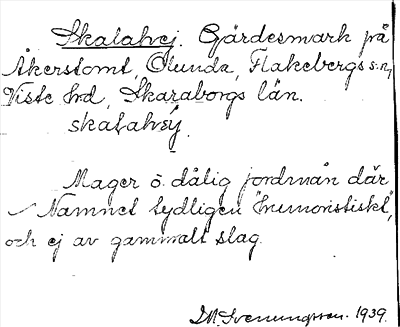 Skalahvej. Gärdesmark på
Åkerstomt, Olunda, Flakebergs sn,
Viste hrd, Skaraborgs län.
skalahvsy.
Mager o. dålig jordmån där
Namnet tydligen "humoristiskt",
och ej av gammalt slag.
Svenungsson. 1939.